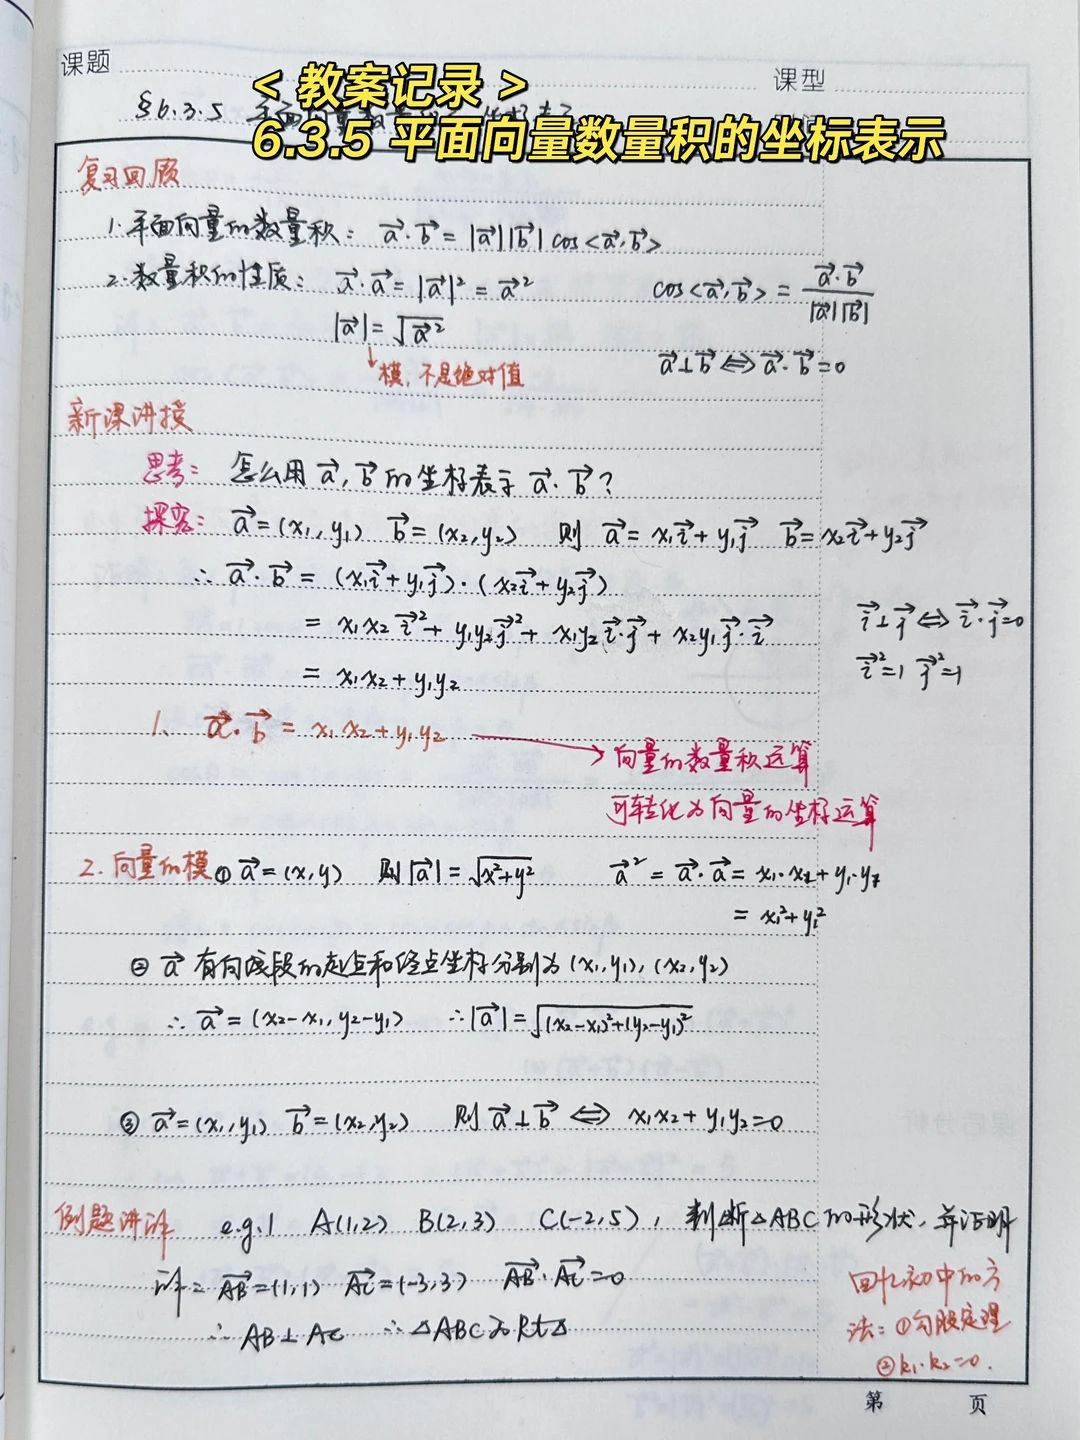 课题
课型
< 教案记录 >
6.3.5 平面向量数量积的坐标表示
§6.3.5
复习回顾
1.平面向量的数量积: a⃗·b⃗=|a⃗||b⃗|cos<a⃗,b⃗>
2.数量积的性质: a⃗·a⃗=|a⃗|²=a⃗² cos<a⃗,b⃗>=a⃗·b⃗/|a⃗||b⃗|
|a⃗|=√a⃗²
↓模,不是绝对值 a⃗⊥b⃗⇔a⃗·b⃗=0
新课讲授
思考: 怎么用a⃗,b⃗的坐标表示a⃗·b⃗?
探究: a⃗=(x₁,y₁) b⃗=(x₂,y₂) 则 a⃗=x₁i⃗+y₁j⃗ b⃗=x₂i⃗+y₂j⃗
∴a⃗·b⃗=(x₁i⃗+y₁j⃗)·(x₂i⃗+y₂j⃗)
=x₁x₂i⃗²+y₁y₂j⃗²+x₁y₂i⃗·j⃗+x₂y₁j⃗·i⃗ i⃗⊥j⃗⇔i⃗·j⃗=0
=x₁x₂+y₁y₂ i⃗²=1 j⃗²=1
1. a⃗·b⃗=x₁x₂+y₁y₂ → 向量的数量积运算
可转化为向量的坐标运算
2.向量的模 ①a⃗=(x,y) 则|a⃗|=√x²+y² a⃗²=a⃗·a⃗=x₁·x₁+y₁·y₁
=x₁²+y₁²
②a⃗有向线段的起点和终点坐标分别为(x₁,y₁),(x₂,y₂)
∴a⃗=(x₂-x₁,y₂-y₁) ∴|a⃗|=√(x₂-x₁)²+(y₂-y₁)²
③a⃗=(x₁,y₁) b⃗=(x₂,y₂) 则a⃗⊥b⃗⇔x₁x₂+y₁y₂=0
例题讲评 e.g.1 A(1,2) B(2,3) C(-2,5), 判断△ABC的形状,并证明
解: AB⃗=(1,1) AC⃗=(-3,3) AB⃗·AC⃗=0
∴AB⊥AC ∴△ABC为Rt△
回忆初中的方
法: ①勾股定理
②k₁·k₂=0.
第 页